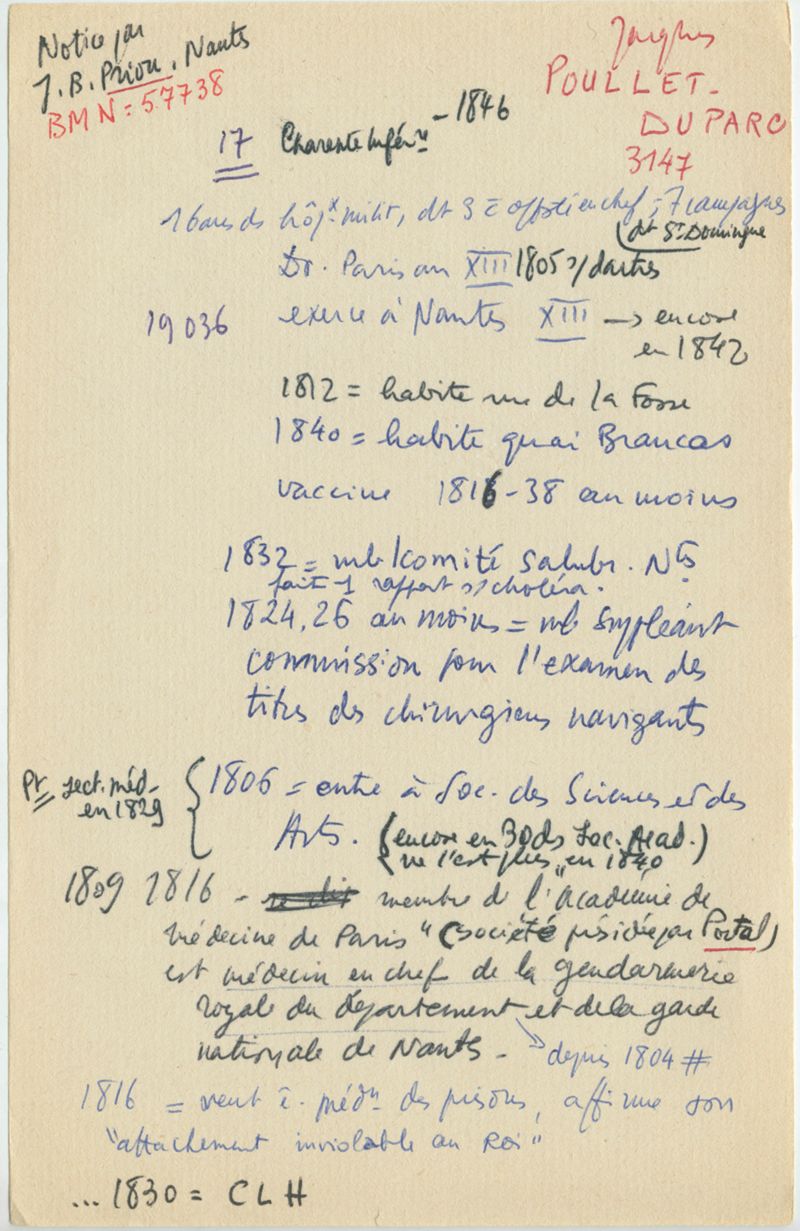 Notice par
J.B. Priou. Nants
BM N = 57738
Jacques
POULLET-
DUPARC
3147
17 Charente Infér.re - 1846
16 ans ds hôp.x milit, dt 3 = off. sté en chef ; 7 campagnes
(dt St Domingue
Dr. Paris an XIII 1805 s/ dartres
19036 exerce à Nantes XIII → encore
en 1842
1812 = habite rue de la Fosse
1840 = habite quai Brancas
vaccine 1816-38 au moins
1832 = mb/comité salubr. Nts
fait 1 rapport s/ choléra.
1824, 26 au moins = mb suppléant
commission pour l'examen des
titres des chirurgiens navigants
Pt sect. méd-
en 1829
{ 1806 = entre à Soc. des Sciences et des
Arts. (encore en 30 ds Soc. Acad.)
( ne l'est plus en 1840
1809 1816 - membre de l'"Académie de
médecine de Paris" (société présidée par Portal)
est médecin en chef de la gendarmerie
royale du département et de la garde
nationale de Nants - depuis 1804 #
1816 = veut ê. médn des prisons, affirme son
"attachement inviolable au Roi"
... 1830 = CLH